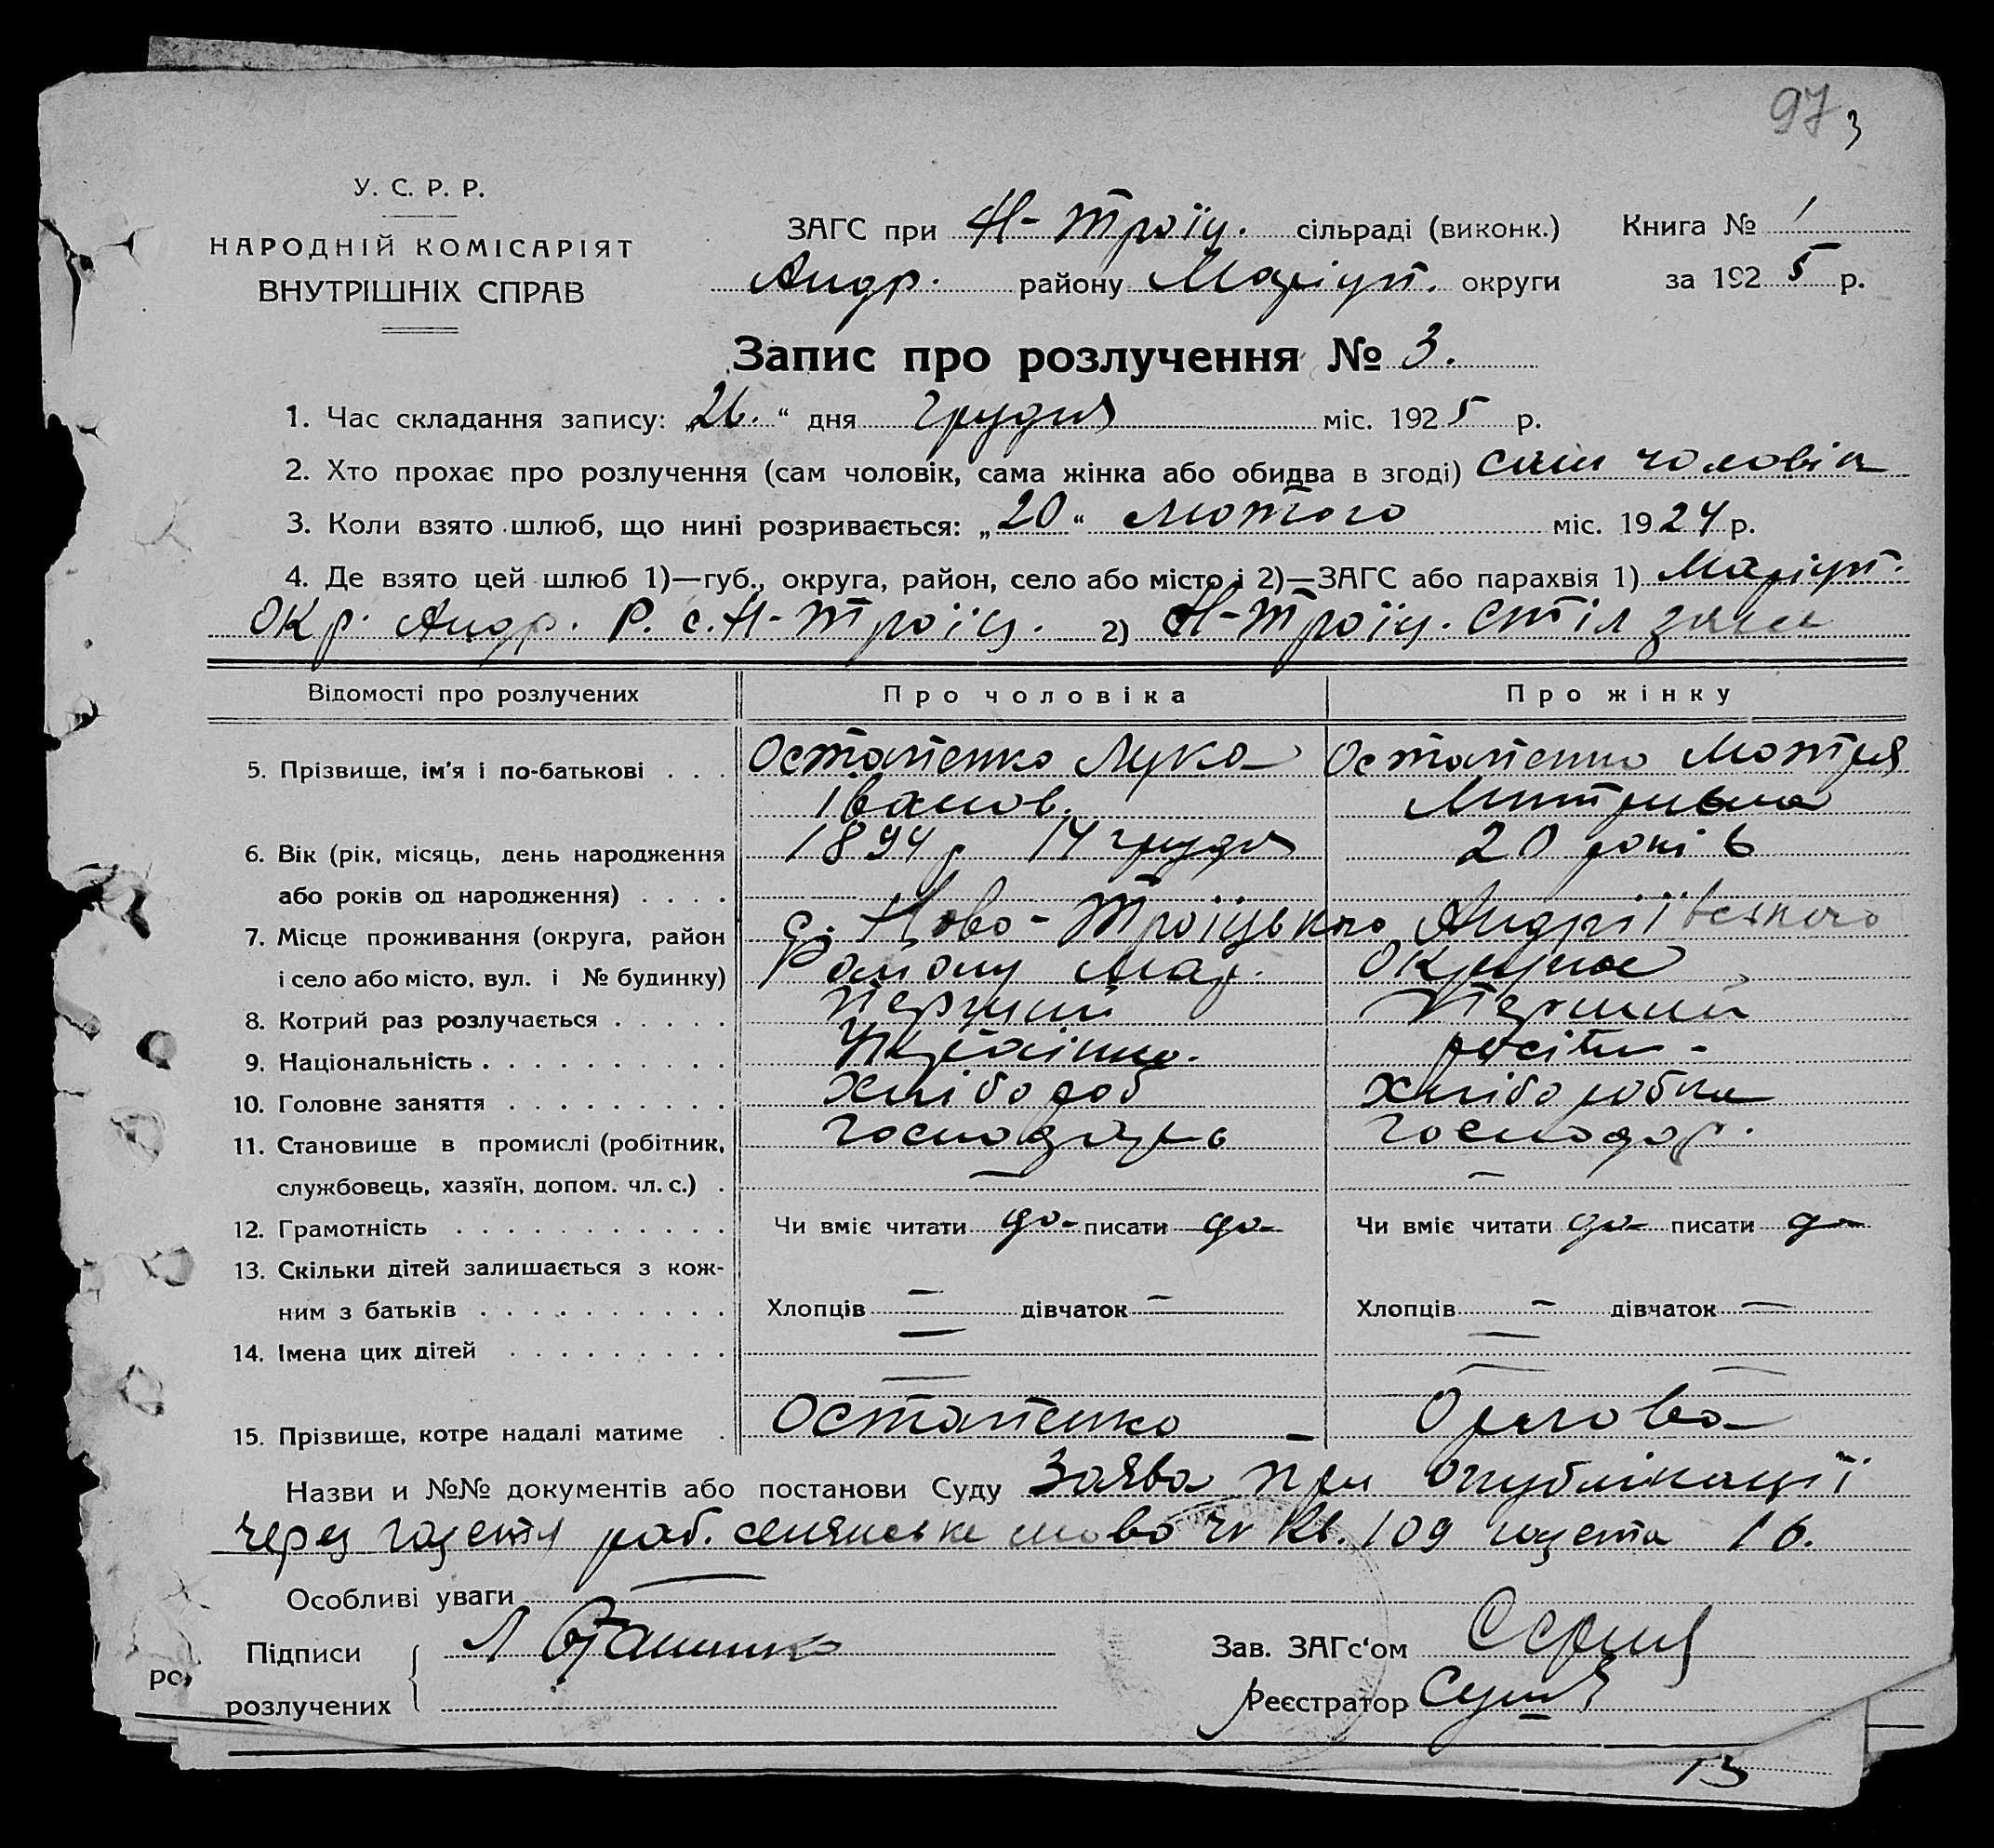 97 3
У. С. Р. Р.
НАРОДНІЙ КОМІСАРІЯТ
ВНУТРІШНІХ СПРАВ
ЗАГС при Н-Троїц. сільраді (виконк.) Книга № 1
Андр. району Маріуп. округи за 1925 р.
Запис про розлучення № 3.
1. Час складання запису: „26.“ дня грудня міс. 1925 р.
2. Хто прохає про розлучення (сам чоловік, сама жінка або обидва в згоді) сам чоловік
3. Коли взято шлюб, що нині розривається: „20“ лютого міс. 1924 р.
4. Де взято цей шлюб 1)—губ., округа, район, село або місто і 2)—ЗАГС або парахвія 1) Маріуп.
Окр. Андр. Р. с. Н-Троїц. 2) Н-Троїц. стіл
Відомості про розлучених Про чоловіка Про жінку
5. Прізвище, ім'я і по-батькові . . . Остапенко Лука Остапенко Мотря
Іванов. Митривна
6. Вік (рік, місяць, день народження 1894 р 14 грудня 20 років
або років од народження) . . . .
7. Місце проживання (округа, район с. Ново-Троїцького Андріївського
і село або місто, вул. і № будинку) Району Мар. Округи
8. Котрий раз розлучається . . . . . Перший Перший
9. Національність . . . . . . . . . . Україн.
10. Головне заняття . . . . . . . . . Хлібороб Хліборобка
11. Становище в промислі (робітник, Господарь Господар.
службовець, хазяїн, допом. чл. с.) . — —
12. Грамотність . . . . . . . . . . . Чи вміє читати да писати да Чи вміє читати да писати да
13. Скільки дітей залишається з кож-
ним з батьків . . . . . . . . . . Хлопців — дівчаток — Хлопців — дівчаток —
14. Імена цих дітей . . . . . . . . . — —
— — —
15. Прізвище, котре надалі матиме . Остапенко — Орлова
Назви и №№ документів або постанови Суду Заява при опублікації
через газетя раб. селянське 109 газета 16.
Особливі уваги —
Підписи Л Зав. ЗАГс‘ом
ро
розлучених Реєстратор
13